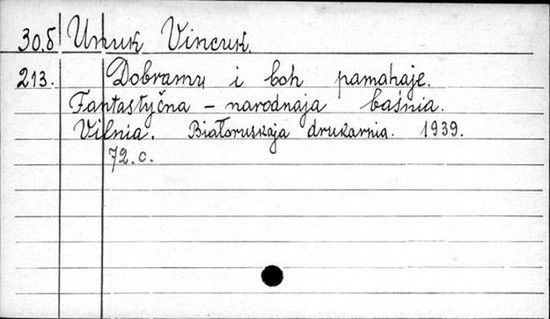 30.б Unuk Vincuk.
213. Dobramu i boh pamahaje.
Fantastyčna – narodnaja baśnia.
Vilnia. Białoruskaja drukarnia. 1939.
72. c.